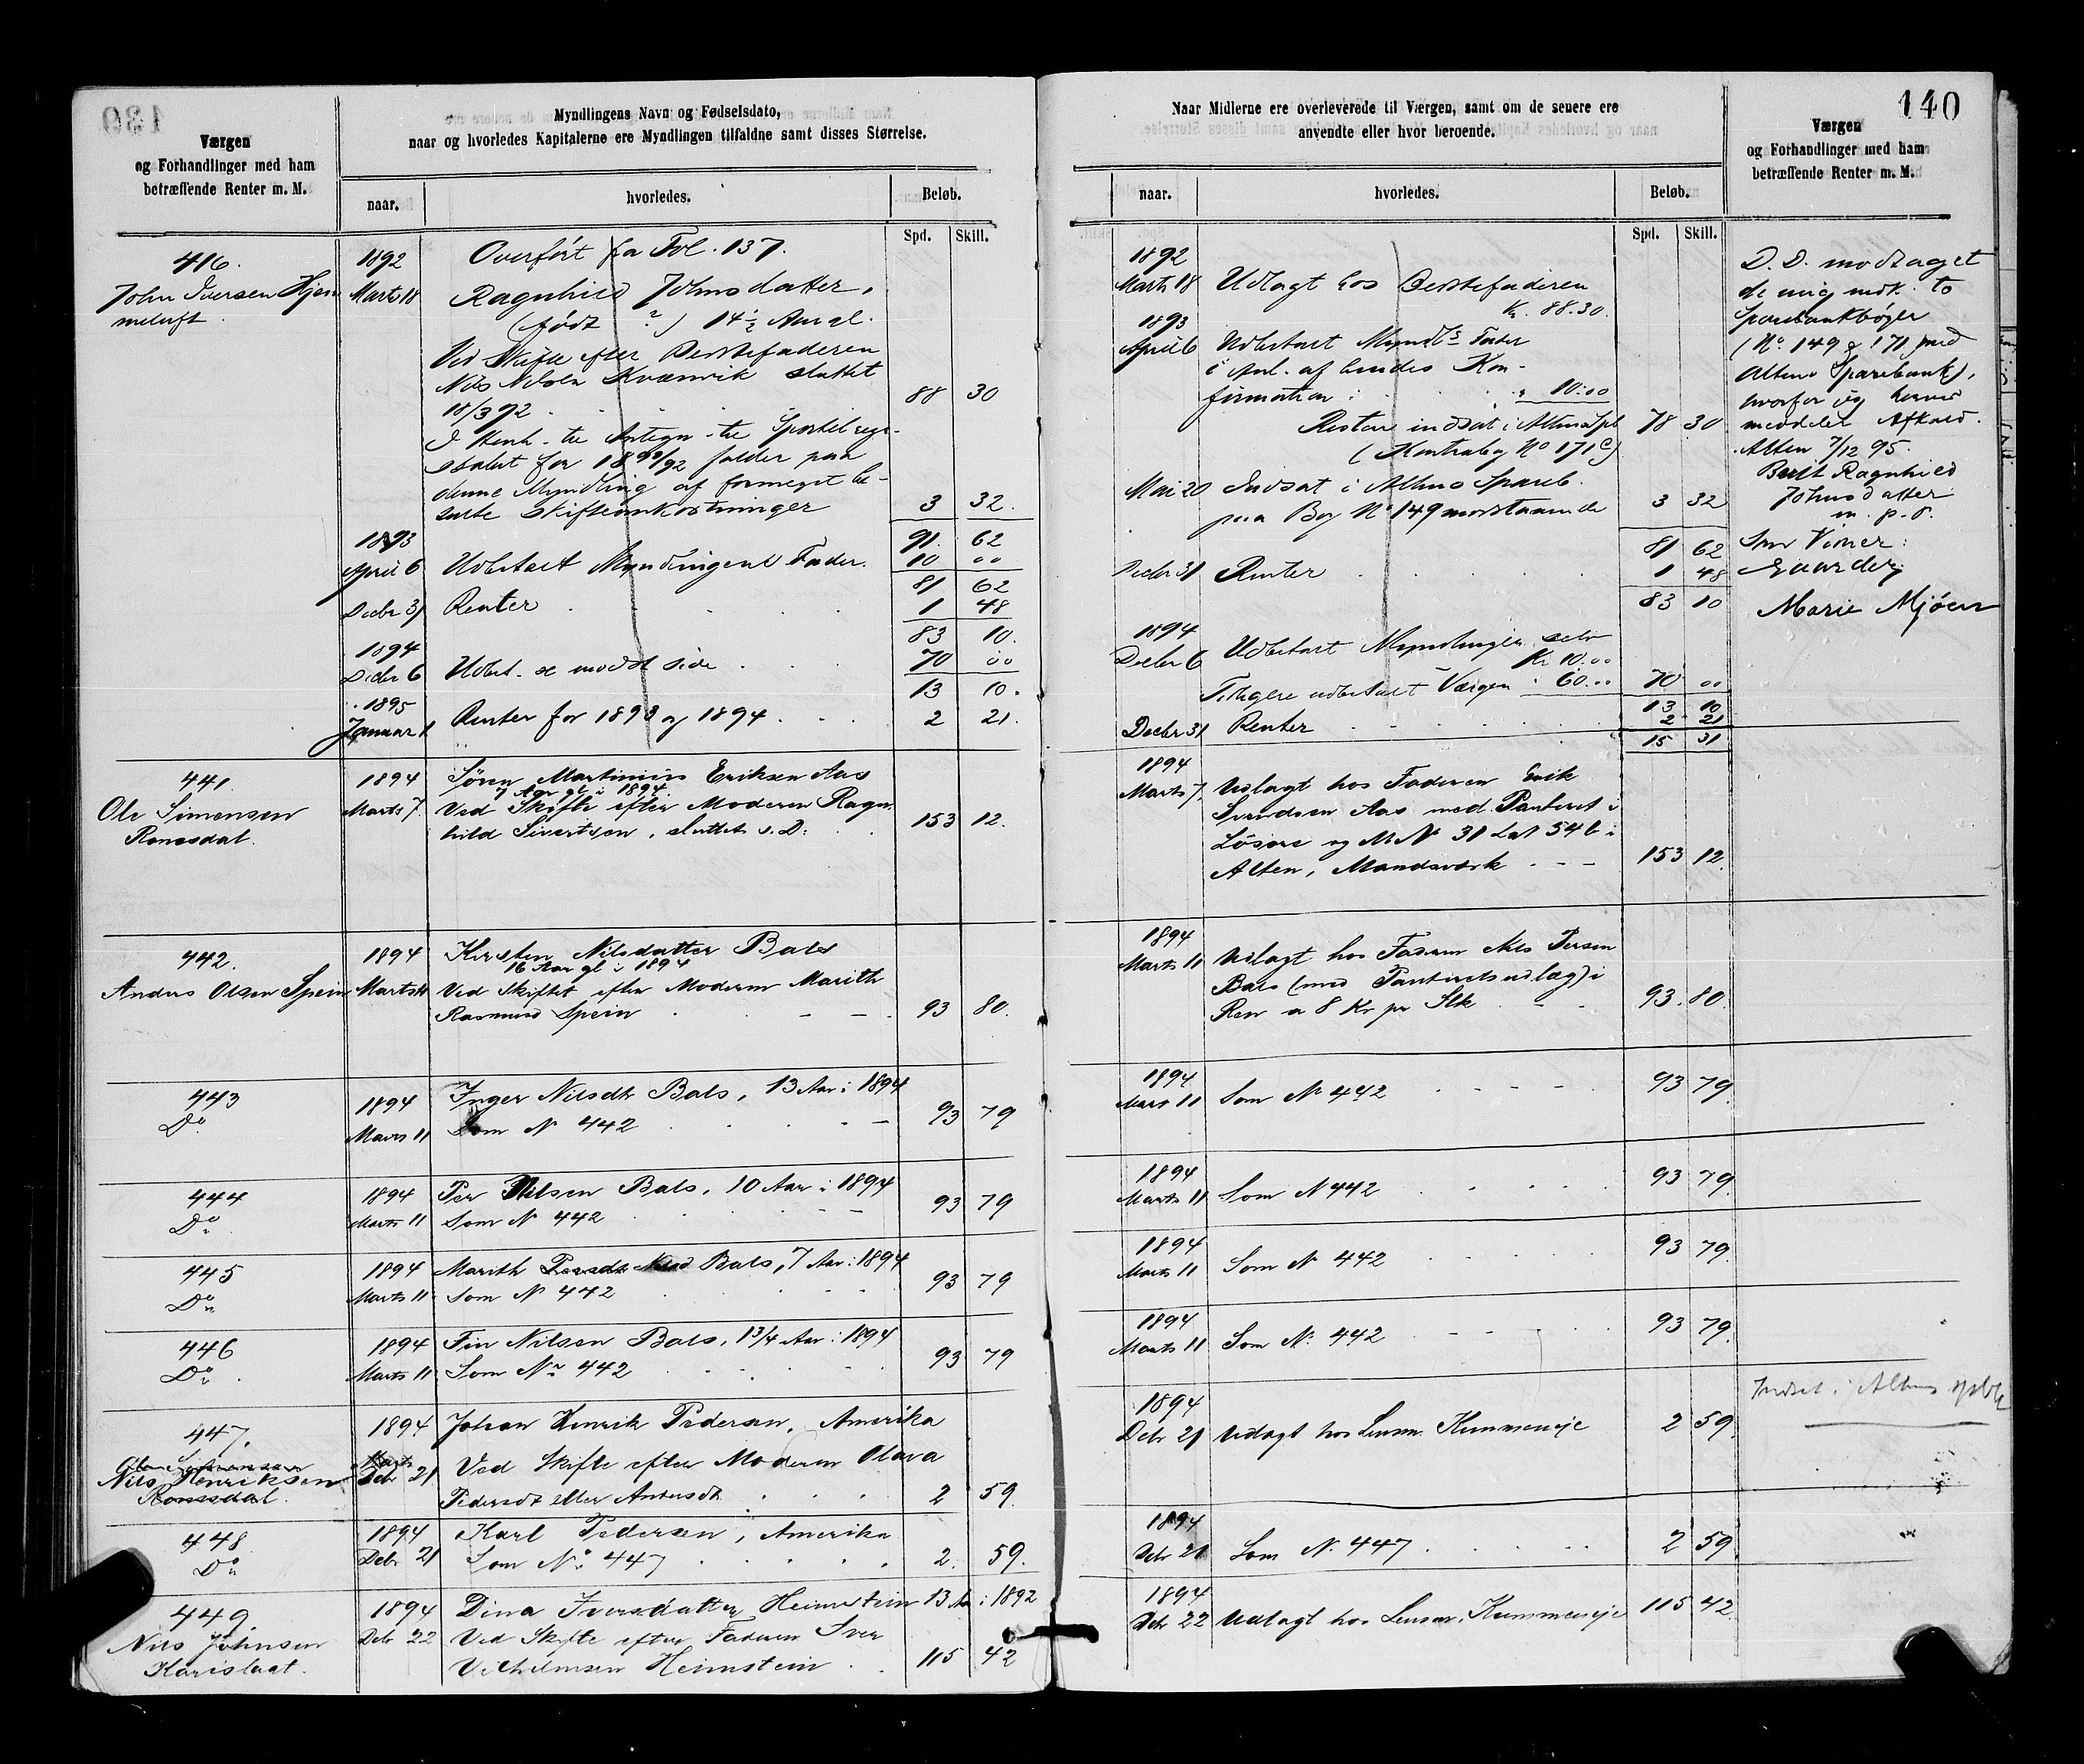 140
Værgen
og Forhandlinger med ham
betræffende Renter m. M.
Myndlingens Navn og Fødselsdato,
naar og hvorledes Kapitalerne ere Myndlingen tilfaldne samt disses Størrelse.
naar.
hvorledes.
Beløb.
Spd. Skill.
416.
John Iversen Hjem
meluft
1892 Overført fra Fol. 137.
Marts 18 Ragnhild Johnsdatter,
(født ?) 14½ Aar gl.
Ved Skifte efter Bedstefaderen
Nils Nilsen Kvænvik sluttet
18/3 92 88 30
I Henh. til Antegn. til Sportelregn-
skabet for 18 91/92 falder paa
denne Myndling af formeget be-
talte Skifteomkostninger 3 32.
1893 91. 62
April 6 Udbetalt Myndlingens Fader. 10 00
81 62
Decbr 31 Renter 1 48
83 10.
1894
Decbr 6 Udbet. se modst side 70 00
13 10.
1895
Januar 1 Renter for 1893 og 1894 2 21.
441.
Ole Simensen
Romsdal.
1894 Søren Martinius Eriksen Aas
7 Aar gl i 1894.
Marts 7. Ved Skifte efter Moderen Ragn-
hild Sivertsen, sluttet s. D: 153 12.
442.
Anders Olsen Spein
1894 Kirsten Nilsdatter Bals
16 Aar gl i 1894
Marts 11 Ved Skiftet efter Moderen Marith
Rasmusd Spein 93 80.
443
Do
1894 Inger Nilsdtr Bals, 13 Aar i 1894
Marts 11 Som No 442 93 79
444
Do
1894 Per Nilsen Bals, 10 Aar i 1894
Marts 11 Som No 442 93 79
445
Do
1894 Marith Persdtr Nilsd Bals, 7 Aar i 1894
Marts 11 Som No 442 93 79
446
Do
1894 Fin Nilsen Bals, 1 3/4 Aar i 1894
Marts 11 Som No 442 93 79
447.
Ole Simensen
Nils Henriksen
Romsdal.
1894 Johan Henrik Pedersen, Amerika
Marts
Debr 21 Ved Skifte efter Moderen Olava
Pedersdt eller Andersdt 2 59.
448
Do
1894 Karl Pedersen, Amerika
Debr 21 Som No 447 2. 59.
449.
Nils Johnsen
Karislaat.
1894 Dina Iversdatter Heimstein 13 Aar i 1892
Debr 22 Ved Skifte efter Faderen Iver
Vilhelmsen Heimstein 115 42
Naar Midlerne ere overleverede til Værgen, samt om de senere ere
anvendte eller hvor beroende.
naar.
hvorledes.
Beløb.
Spd. Skill.
Værgen
og Forhandlinger med ham
betræffende Renter m. M.
1892
Marts 18 Udlagt hos Bedstefaderen
Kr. 88.30.
1893
April 6 Udbetalt Myndls Fader
i Anl. af hendes Kon-
firmation 10.00
Resten indsat i Altens Spb 78 30
(Kontrabog No 171 c)
Mai 20 Indsat i Altens Spareb.
paa Bog No 149 3 32
81 62
Decbr 31 Renter 1 48
83 10
1894
Decbr 6 Udbetalt Myndlingen selv
Kr 10.00
Tidligere udbetalt Værgen 60.00 70 00
13 10
Decbr 31 Renter 2 21
15 31
D. D. modtaget
to
Sparebankbøger
(No. 149 & 171 med
Altens Sparebank),
hvorfor jeg herved
meddeler Afkald.
Alten 7/12 95.
Berit Ragnhild
Johnsdatter
m. p. P.
Som Vitner:
Gaarder
Marie Mjøen
1894
Marts 7. Udlagt hos Faderen Erik
Svendsen Aas med Panteret i
Løsøre og M No 31 L No 54 b i
Alten, Mandsværk 153 12.
1894
Marts 11 Udlagt hos Faderen Nils Persen
Bals (med Panteretsudlæg) i
Ren a 8 Kr pr Stk 93. 80.
1894
Marts 11 Som No 442 93 79.
1894
Marts 11 Som No 442 93 79.
1894
Marts 11 Som No 442 93 79.
1894
Marts 11 Som No. 442 93 79.
1894
Debr 21 Udlagt hos Lensm. Kummeneje 2 59.
Indsat i Altens spbk
1894
Debr 21 Som No. 447 2 59
1894
Debr 22 Udlagt hos Lensm. Kummeneje 115 42